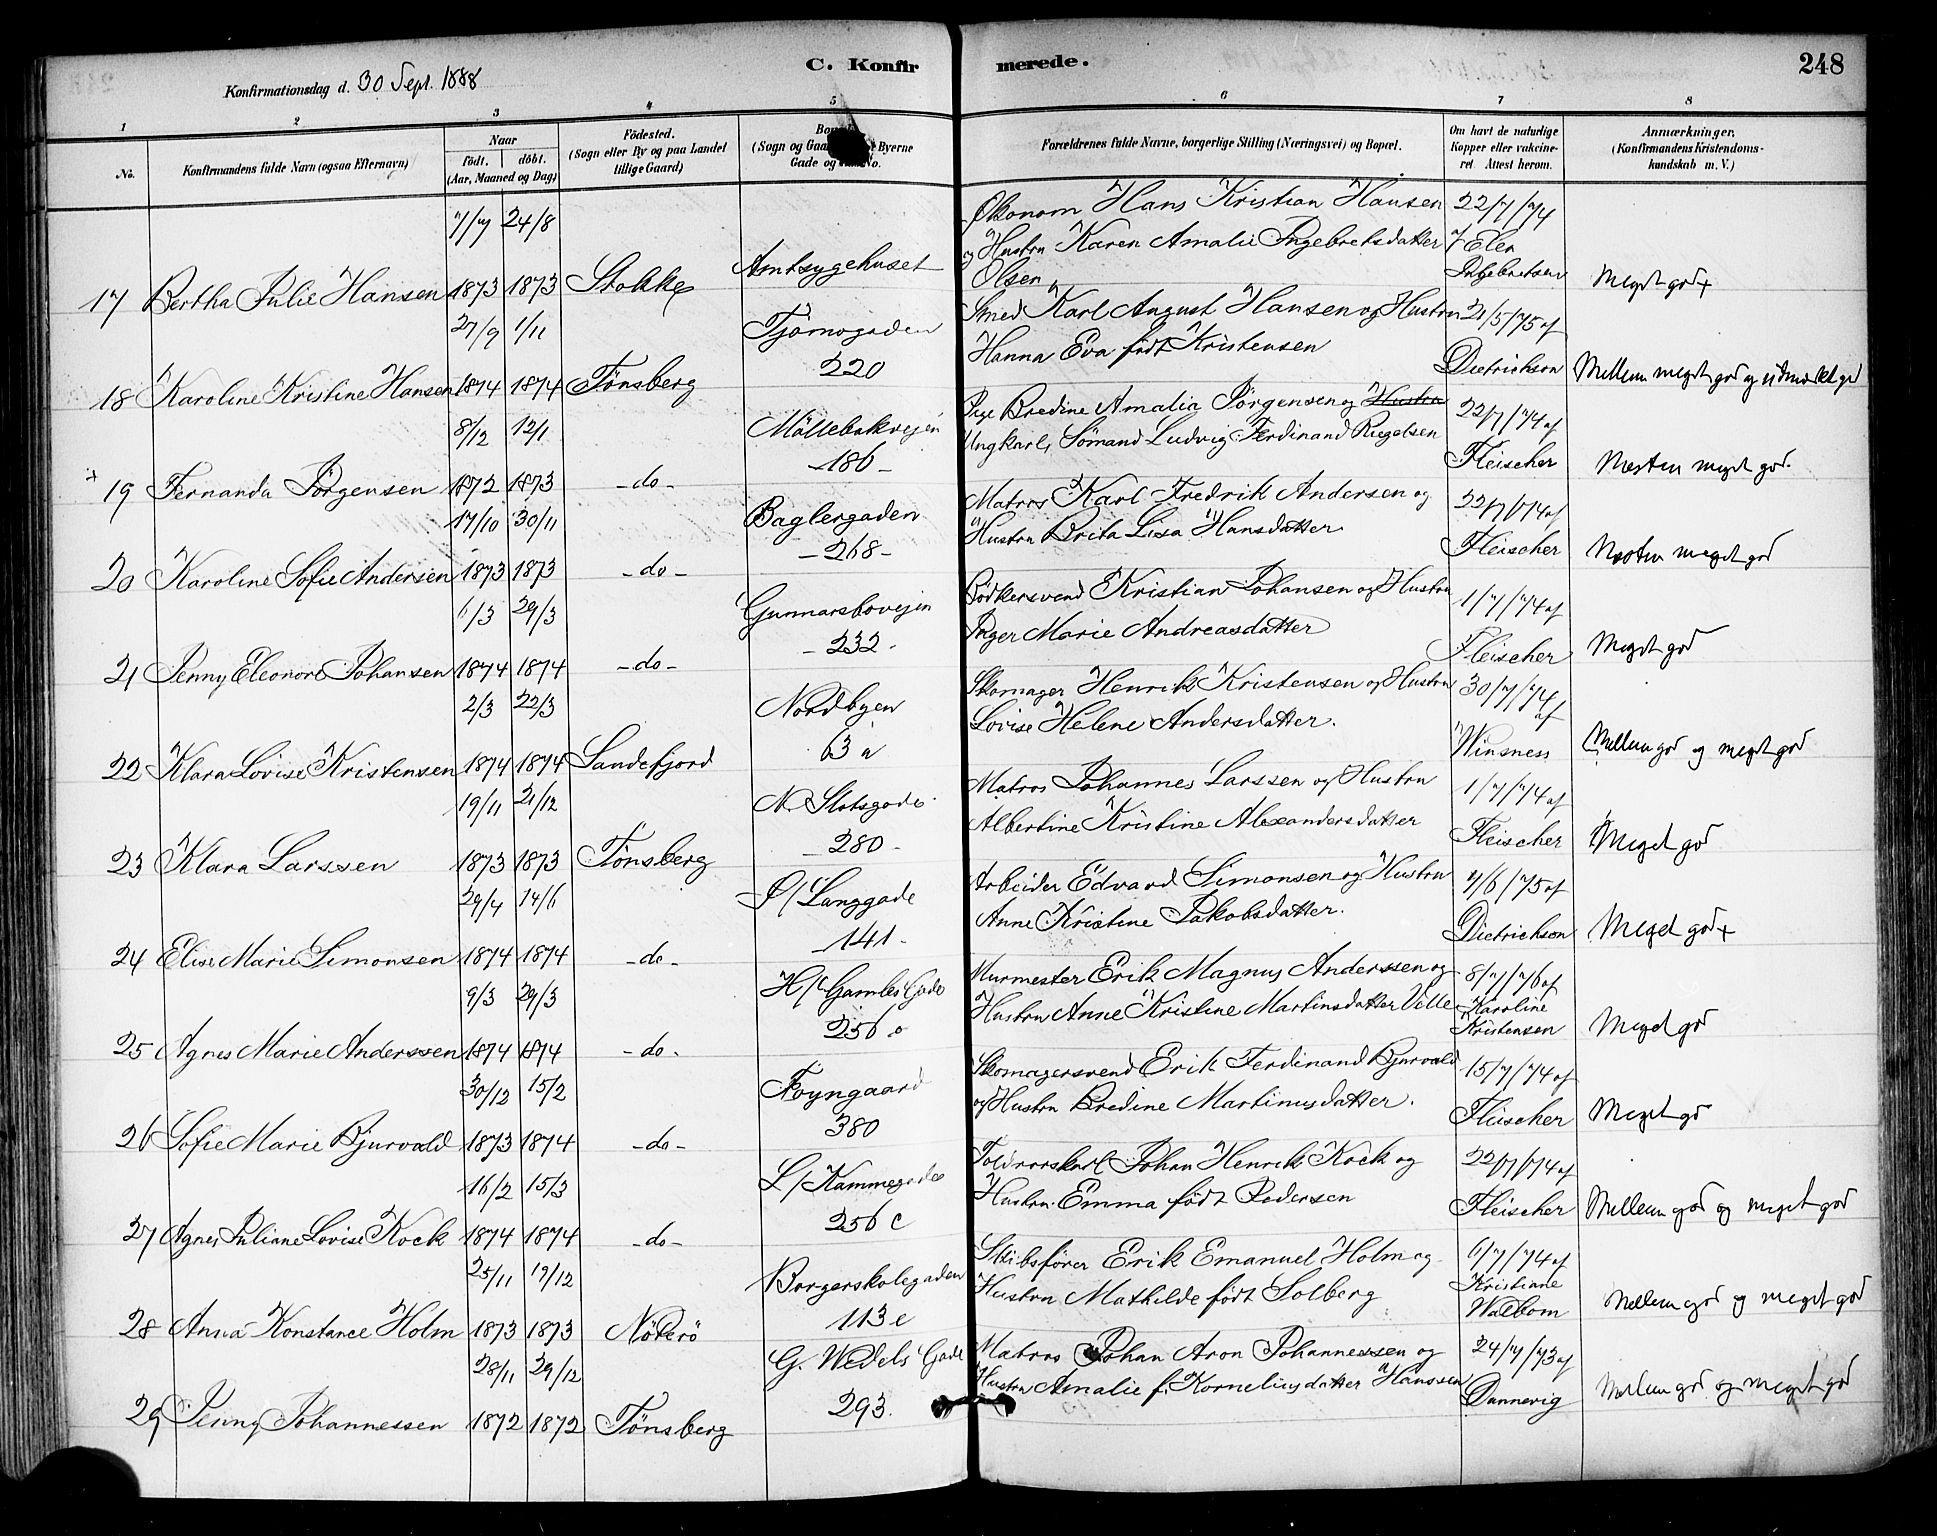 C. Konfirmerede.
248
Konfirmationsdag d. 30 Sept. 1888
1 2 3 4 5 6 7 8
No.
Konfirmandens fulde Navn (ogsaa Efternavn)
Naar
födt. döbt.
(Aar, Maaned og Dag)
Födested.
(Sogn eller By og paa Landet
tillige Gaard)
(Sogn og Byerne
Gade og No.
Forældrenes fulde Navne, borgerlige Stilling (Næringsvei) og Bopæl.
Om havt de naturlige
Kopper eller vakcine-
ret Attest herom.
Anmærkninger,
(Konfirmandens Kristendoms-
kundskab m. V.)
7/7 24/8 Økonom Hans Kristian Hansen 22/7/74
Amtsygehuset og Hustru Karen Amalie Ingebretsdatter af Elen
17 Bertha Julie Hansen 1873 1873 Stokke Olsen Ingebretsen Meget god +
27/9 1/11 Tjømogaden Smed Karl August Hansen og Hustru 21/5/75 af
18 Karoline Kristine Hansen 1874 1874 Tønsberg 220 Hanna Eva født Kristensen Dietrichson Mellem meget god og udmærket god
8/12 12/1 Möllebakvejen Pige Bredine Amalia Jörgensen og Hustru 22/7/74 af
+ 19 Fernanda Jörgensen 1872 1873 - do - 186 - Ungkarl, Sömand Ludvig Ferdinand Rugelsen Fleischer Næsten meget god.
17/10 30/11 Baglergaden Matros Karl Fredrik Andersen og 22/7/74 af
20 Karoline Sofie Andersen 1873 1873 - do - - 268 - Hustru Brita Lisa Hansdatter Fleischer Næsten meget god
6/3 29/3 Gunnarsbovejen Bödkersvend Kristian Johansen og Hustru 1/7/74 af
21 Jenny Eleonore Johansen 1874 1874 - do - - 232 - Inger Marie Andreasdatter Fleischer Meget god
2/3 22/3 Nordbyen Skomager Henrik Kristensen og Hustru 30/7/74 af
22 Klara Lovise Kristensen 1874 1874 Sandefjord 63 a Lovise Helene Andersdatter. Winsness Mellem god og meget god
19/11 21/12 N. Slotsgade Matros Johannes Larssen og Hustru 1/7/74 af
23 Klara Larssen 1873 1873 Tønsberg - 280 - Albertine Kristine Alexandersdatter Fleischer Meget god
29/4 14/6 S/ Langgade Arbeider Edvard Simonsen og Hustru 4/6/75 af
24 Elise Marie Simonsen 1874 1874 - do - - 141 - Anne Kristine Jakobsdatter. Dietrichson Meget god +
9/3 29/3 H/ Gamles Gade Murmester Erik Magnus Anderssen og 8/7/76 af
25 Agnes Marie Anderssen 1874 1874 - do - 256 Hustru Anne Kristine Martinsdatter Karoline Kristensen Meget god
30/12 15/2 Foyngaard Skomagersvend Erik Ferdinand Bjurvald 15/7/74 af
26 Sofie Marie Bjurvald 1873 1874 - do - 380 og Hustru Bredine Martinusdatter. Fleischer Meget god
16/2 15/3 L/ Kammegade Toldroerskarl Johan Henrik Kock og 22/7/74 af
27 Agnes Juliane Lovise Kock 1874 1874 - do - 256 c Hustru Emma født Pedersen Fleischer Mellem god og meget god
25/11 19/12 Borgerskolegaden Skibsfører Erik Emanuel Holm og 6/7/74 af
28 Anna Konstance Holm 1873 1873 Nöterö 113 e Hustru Mathilde født Solberg Kristiane Walbom Mellem god og meget god
28/11 29/12 G. Wedels Gade Matros Johan Aron Johannessen og 24/7/73 af
29 Jenny Johannessen 1872 1872 Tønsberg 293. Hustru Amalie f. Korneliusdatter Hanssen Dannevig Mellem god og meget god